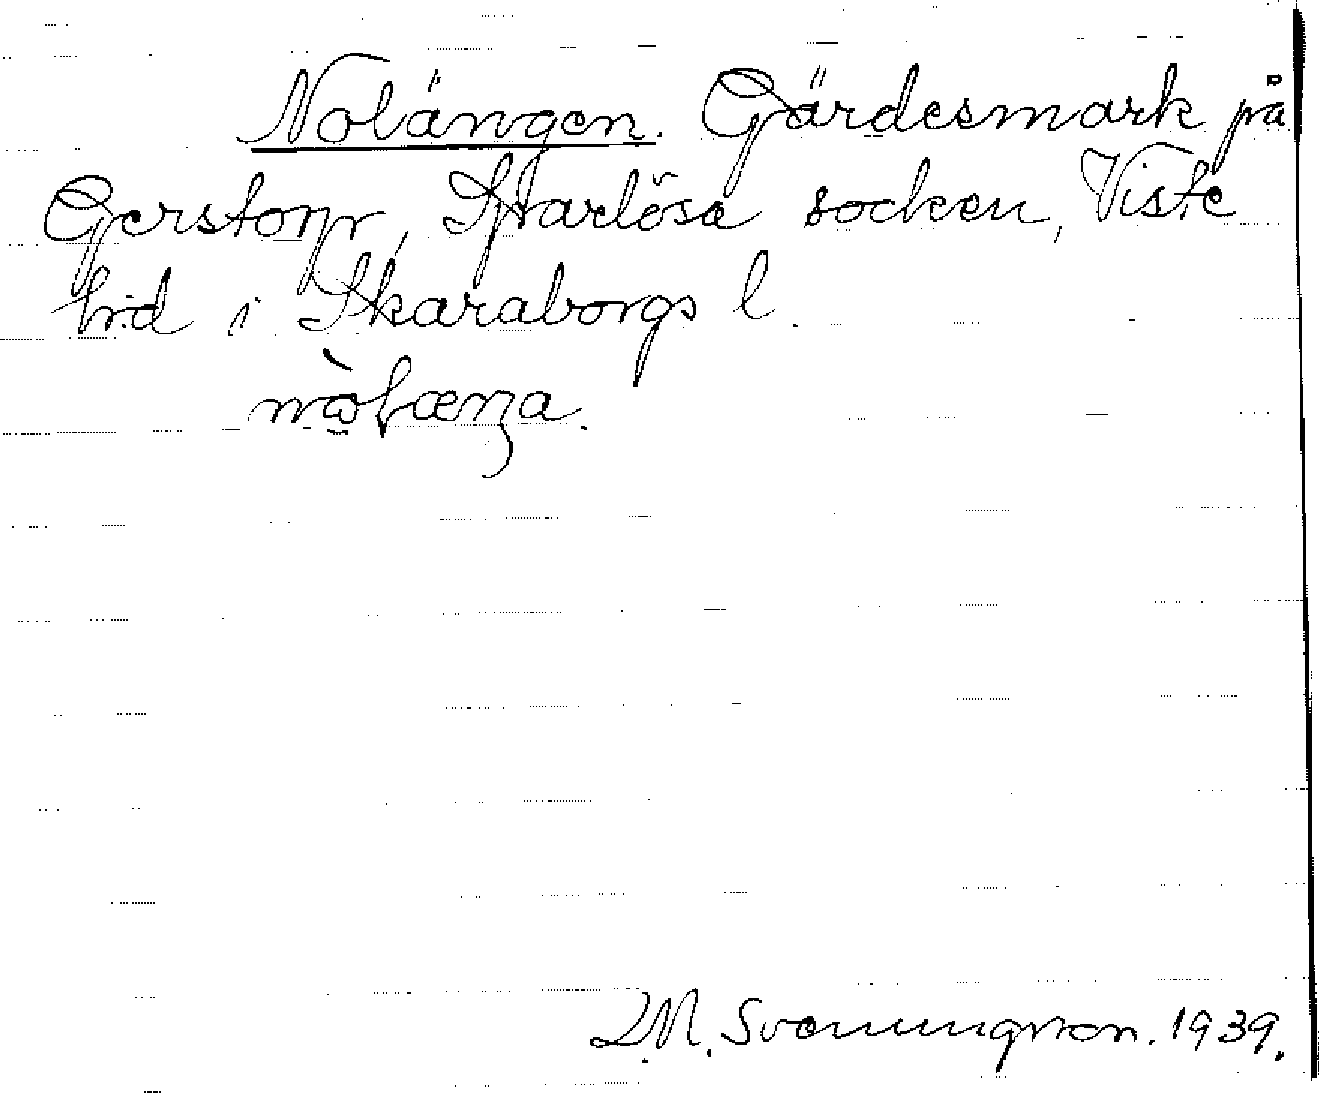 Nolängen. Gärdesmark på
Gerstorp, Sparlösa socken, Viste
hd i Skaraborgs l.
L.M. Svenungsson. 1939.